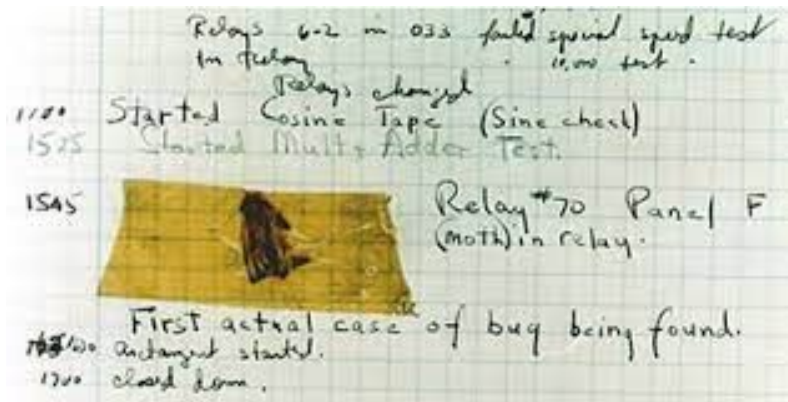 Relays 6-2 in 033 failed special speed test
in relay 10,000 test.
Relays changed
1100 Started Cosine Tape (Sine check)
1525 Started Mult+Adder Test.
1545 Relay #70 Panel F
(moth) in relay.
First actual case of bug being found.
started.
1700 closed down.